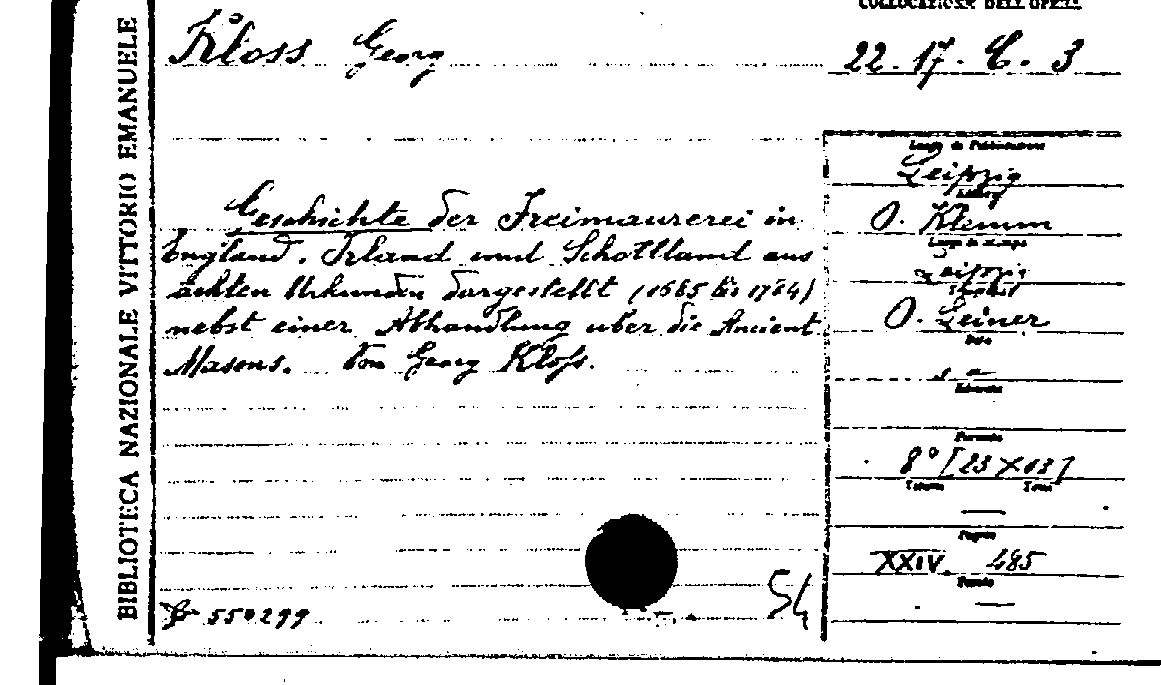 COLLOCAZIONE DELL'OPERA
BIBLIOTECA NAZIONALE VITTORIO EMANUELE
Kloss Georg
22. 17. C. 3
Luogo di Pubblicazione
Leipzig
O. Klemm
Luogo di stampa
Leipzig
O. Leiner
Data
s a
Formato
8° [23×13]
Volume Tomo
Pagine
XXIV. 485
Geschichte der Freimaurerei in
England, Irland und Schottland aus
ächten Urkunden dargestellt (1685 bis 1784)
nebst einer Abhandlung uber die Ancient
Masons. Von Georg Kloſs.
550299
54